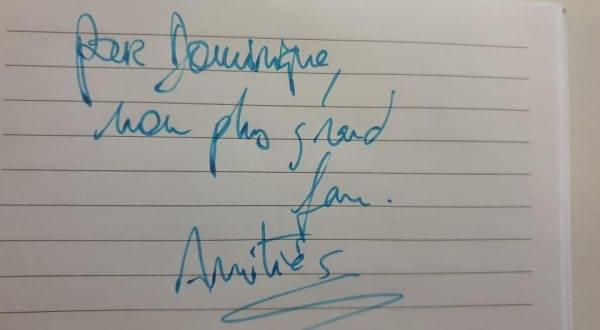 pour Dominique,
mon plus grand
fan.
Amitiés